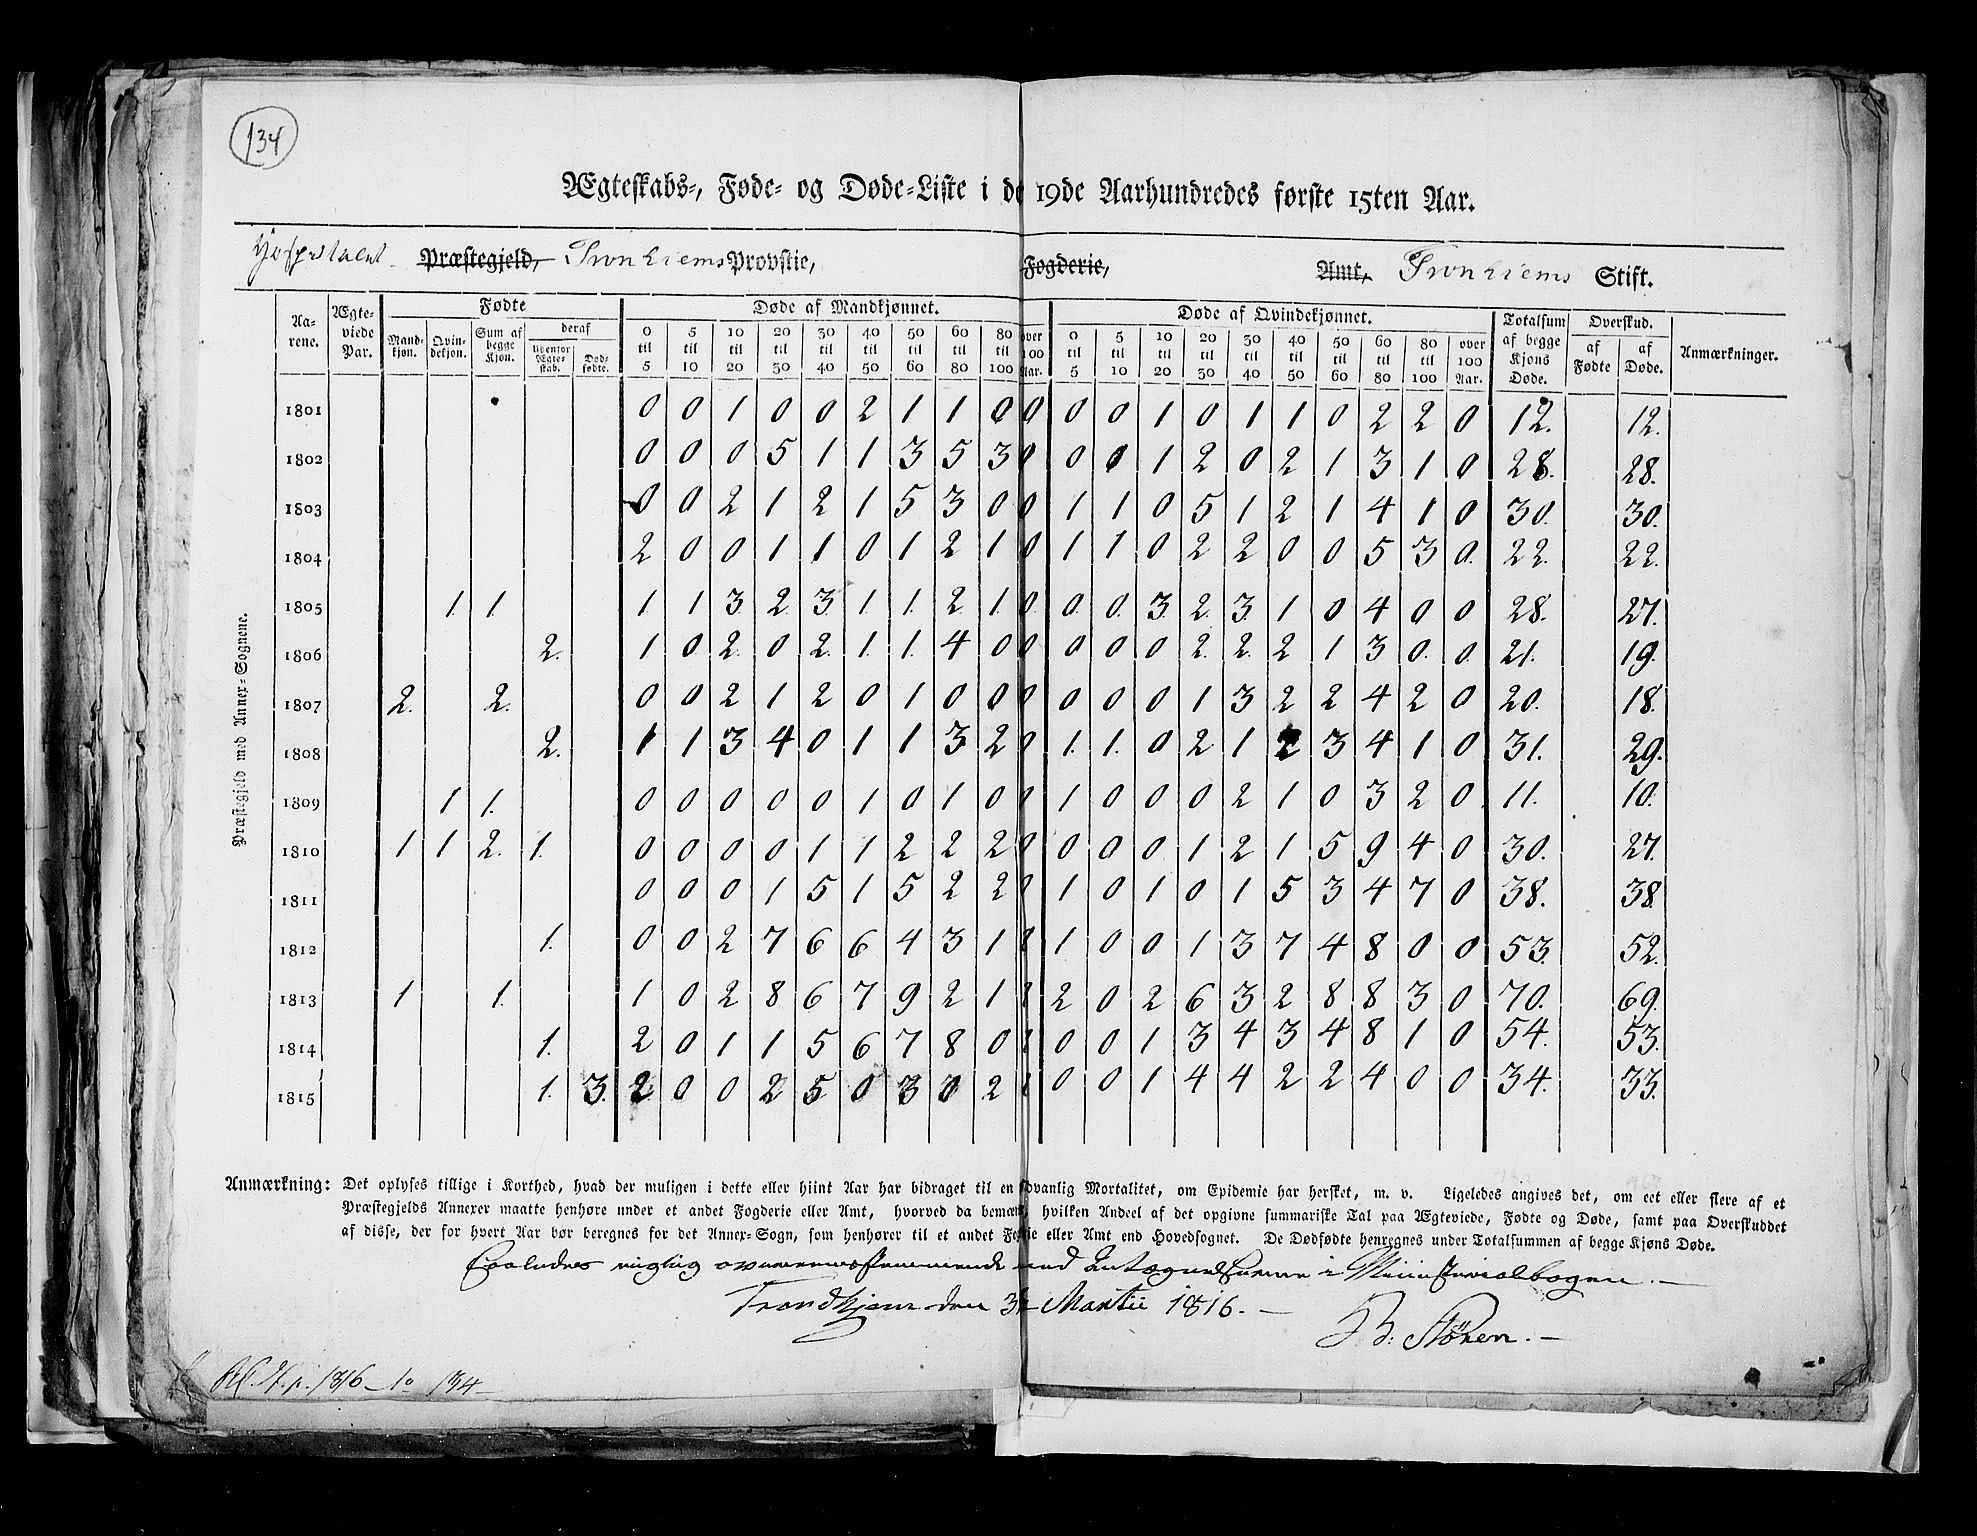 134
Ægteskabs-, Føde- og Døde-Liste i de 19de Aarhundredes første 15ten Aar.
Hospitalet Præstegjeld, Tronhiems Provstie, Fogderie, Amt, Tronhiems Stift.
Præstegjeld med Annex-Sognene.
Aarene. Ægteviede Par. Fødte Døde af Mandkjønnet. Døde af Qvindekjønnet. Totalsum af begge Kjøns Døde. Overskud. Anmærkninger.
Mandkjøn. Qvindekjøn. Sum af begge Kjøn. deraf Udenfor Ægteskab. Dødfødte. 0 til 5 5 til 10 10 til 20 20 til 30 30 til 40 40 til 50 50 til 60 60 til 80 80 til 100 over 100 Aar. 0 til 5 5 til 10 10 til 20 20 til 30 30 til 40 40 til 50 50 til 60 60 til 80 80 til 100 over 100 Aar. af Fødte af Døde.
1801 0 0 1 0 0 2 1 1 0 0 0 0 1 0 1 1 0 2 2 0 12. 12.
1802 0 0 0 5 1 1 3 5 3 0 0 0 1 2 0 2 1 3 1 0 28. 28.
1803 0 0 2 1 2 1 5 3 0 0 1 1 0 5 1 2 1 4 1 0 30. 30.
1804 2 0 0 1 1 0 1 2 1 0 1 1 0 2 2 0 0 5 3 0. 22. 22.
1805 1. 1. 1. 1 3. 2. 3. 1 1. 2 1. 0. 0. 0. 3. 2. 3. 1 0 4 0 0 28. 27.
1806 2. 1 0 2. 0 2. 1. 1. 4 0 0 0 0 0 2. 2. 2 1 3 0. 0. 21. 19.
1807 2. 2. 0 0 2 1 2 0 1 0 0 0 0 0 0 1 3 2 2 4 2 0 20. 18.
1808 2. 1 1 3 4 0 1 1 3 2 0 1. 1. 0 2 1 2 3 4 1 0 31. 29.
1809 1 1. 0 0 0 0 0 1 0 1 0 0 1 0 0 0 2 1 0 3 2 0 11. 10.
1810 1 1 2. 1. 0 0 0 0 1 1 2 2 2 0 0 0 0 1 2 1 5 9 4 0 30. 27.
1811 0 0 0 1 5 1 5 2 2 0 1 0 1 0 1 5 3 4 7 0 38. 38
1812 1. 0 0 2 7 6 6 4 3 1 0 1 0 0 1 3 7 4 8 0 0 53. 52.
1813 1 1. 1 0 2 8 6 7 9 2 1 0 2 0 2 6 3 2 8 8 3 0 70. 69.
1814 1. 2 0 1 1 5 6 7 8 0 0 0 0 1 3 4 3 4 8 1 0 54. 53.
1815 1. 3. 2 0 0 2 5 0 3 0 2 0 0 0 1 4 4 2 2 4 0 0 34. 33.
Anmærkning: Det oplyses tillige i Korthed, hvad der muligen i dette eller hiint Aar har bidraget til en sædvanlig Mortalitet, om Epidemie har hersket, m. v. Ligeledes angives det, om eet eller flere af et
Præstegjelds Annexer maatte henhøre under et andet Fogderie eller Amt, hvorved da bemærk hvilken Andeel af det opgivne summariske Tal paa Ægteviede, Fødte og Døde, samt paa Overskuddet
af disse, der for hvert Aar bør beregnes for det Annex-Sogn, som henhører til et andet Fogderie eller Amt end Hovedsognet. De Dødfødte henregnes under Totalsummen af begge Kjøns Døde.
rigtig overeensstemmende med Ministerialbogen. —
Trondhjem den 31 Martii 1816. — B. Stören. —
1816 134